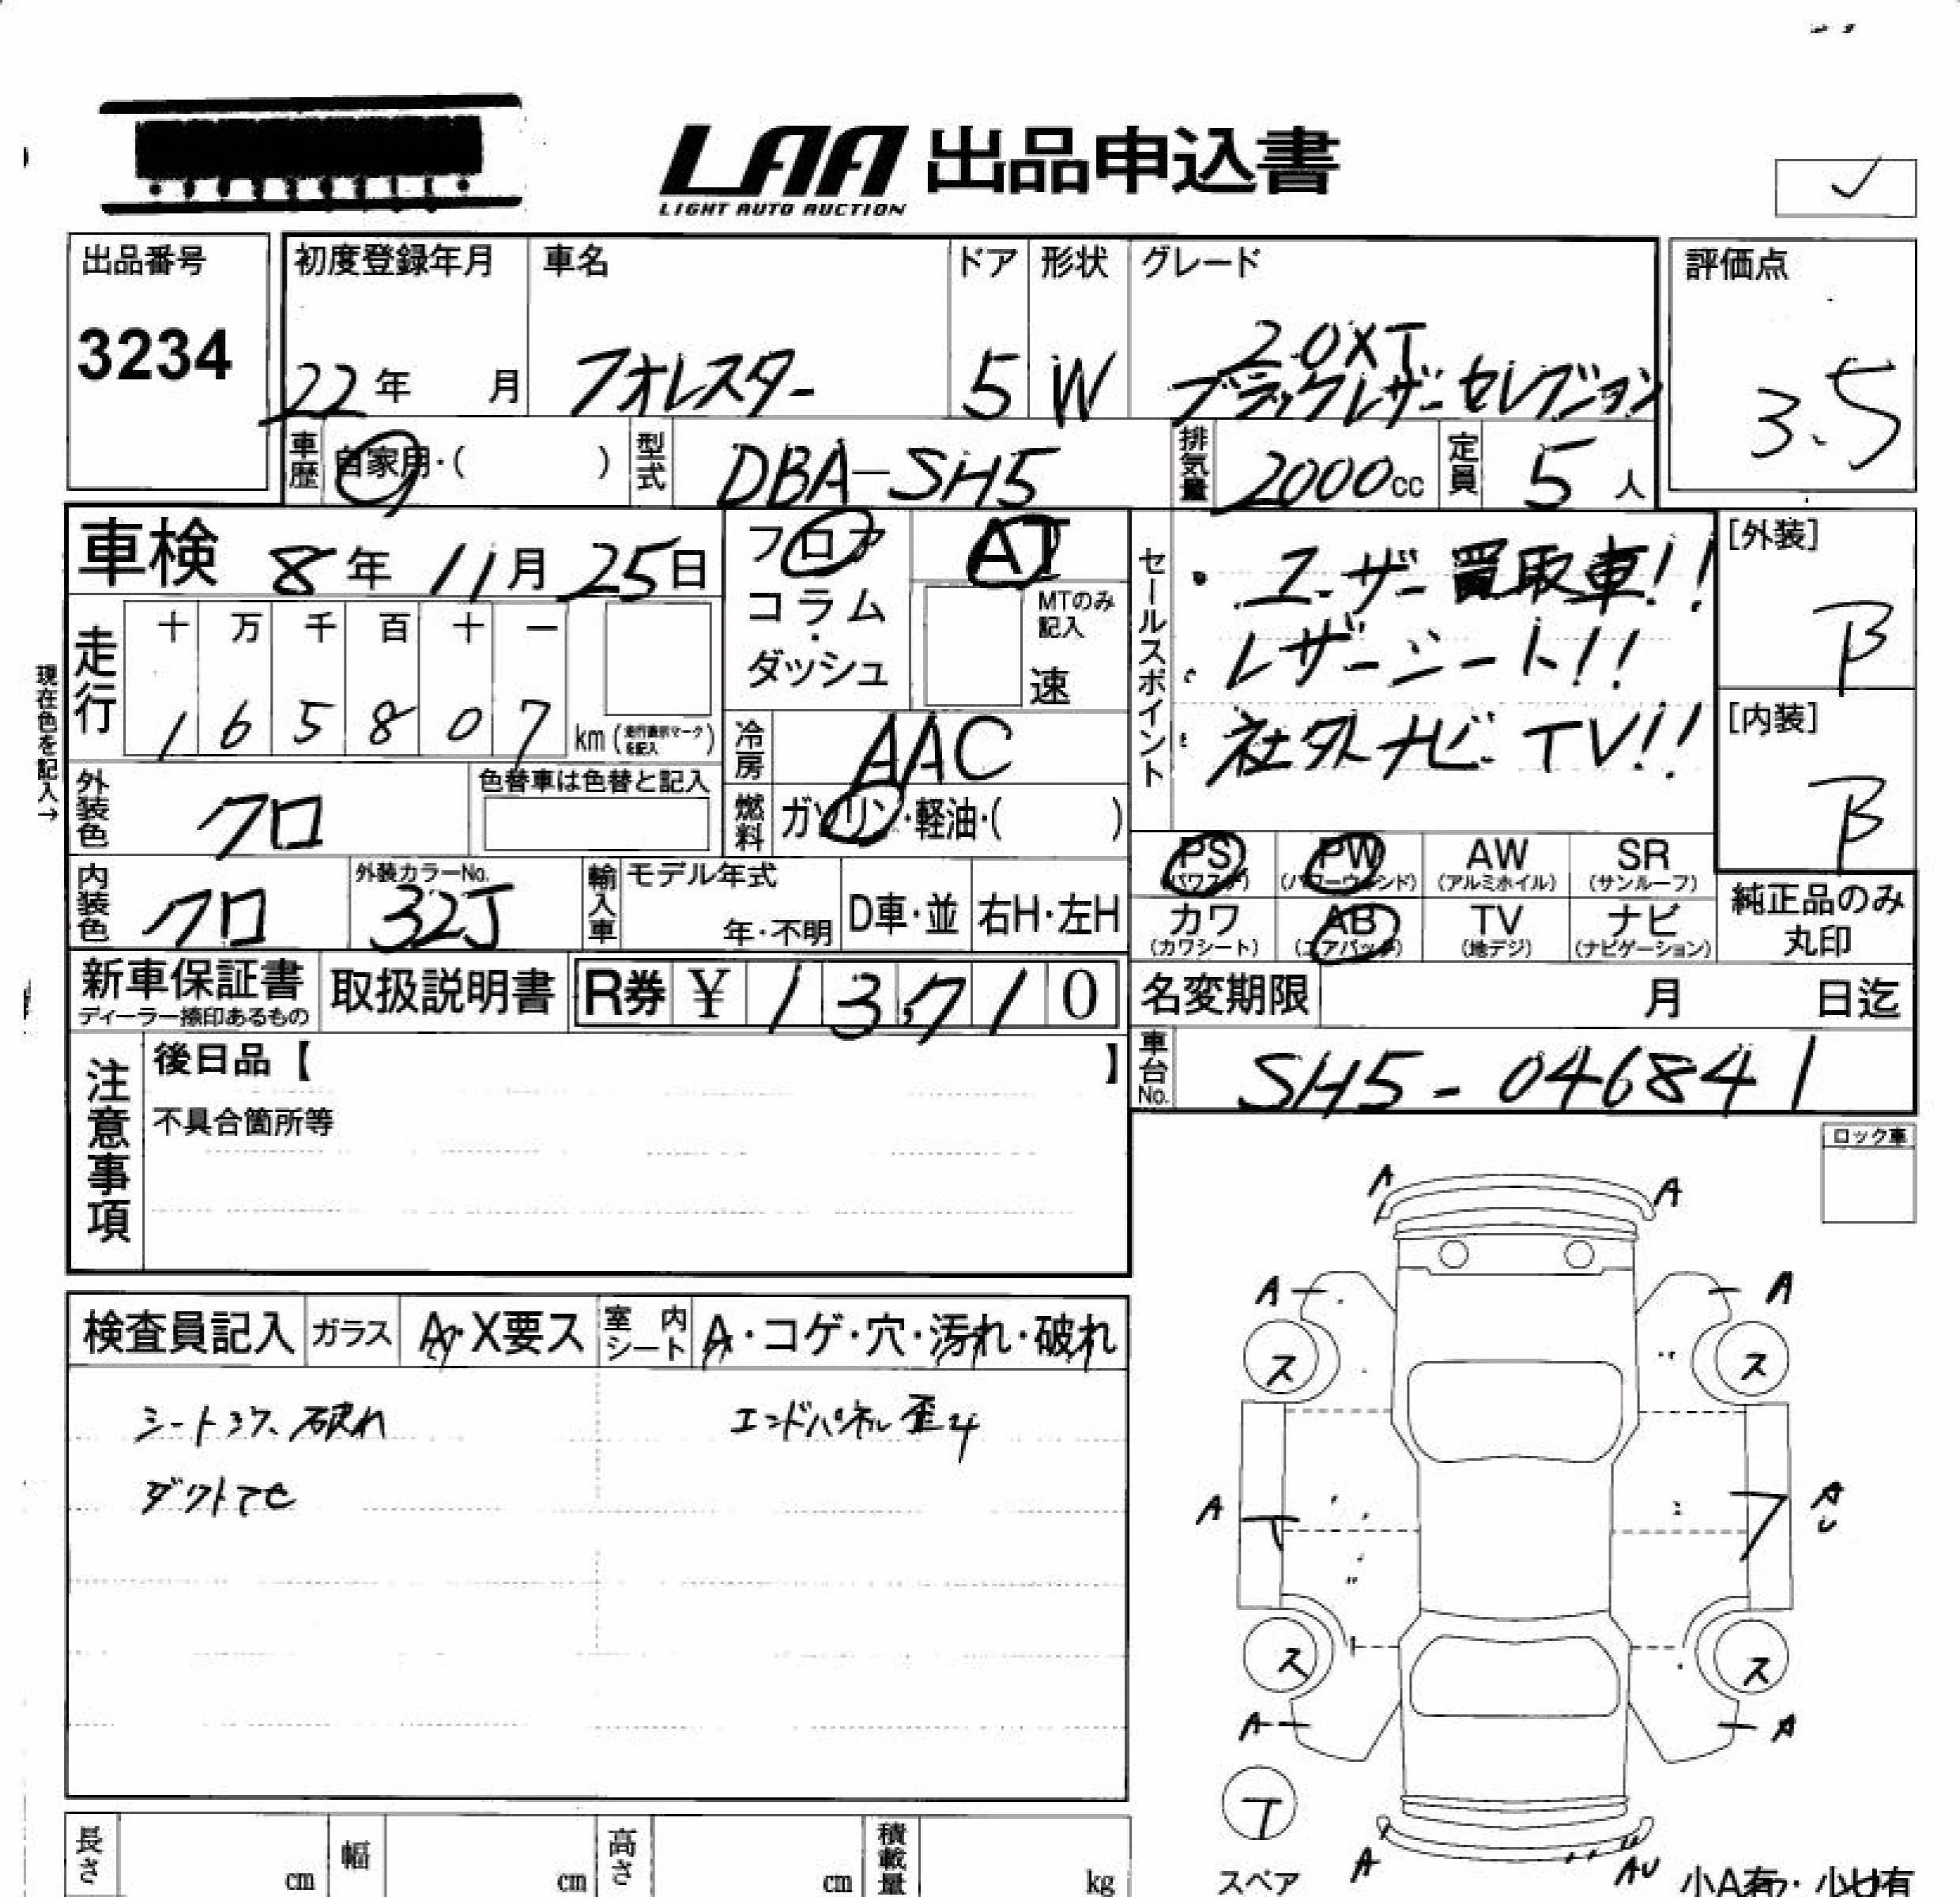 LAA 出品申込書
LIGHT AUTO AUCTION
✓
出品番号 初度登録年月 車名 ドア 形状 グレード 評価点
3234 22年 月 フォレスター 5 W 2.0XT
ブラックレザーセレクション
3.5
車歴 自家用・( ) 型式 DBA-SH5 排気量 2000cc 定員 5人
車検 8年 11月 25日 フロア AT
コラム・ダッシュ
MTのみ記入
速
セールスポイント
・ユーザー買取車!!
・レザーシート!!
・社外ナビ・TV!!
[外装]
B
[内装]
B
現在色を記入→
走行 十 万 千 百 十 一
1 6 5 8 0 7 km (走行表示マークを記入)
冷房 AAC
外装色 クロ 色替車は色替と記入
燃料 ガソリン・軽油・( )
内装色 クロ 外装カラーNo. 32J 輸入車 モデル年式 年・不明 D車・並 右H・左H
PS (パワステ) PW (パワーウィンド) AW (アルミホイル) SR (サンルーフ)
カワ (カワシート) AB (エアバック) TV (地デジ) ナビ (ナビゲーション)
純正品のみ
丸印
新車保証書 取扱説明書 R券 ¥ 13,710
ディーラー捺印あるもの
名変期限 月 日迄
車台No. SH5-046841
注意事項
後日品【 】
不具合箇所等
ロック車
検査員記入 ガラス A・X要ス 室内シート A・コゲ・穴・汚れ・破れ
エンドパネル歪み
シートスレ、破れ
ダクト
A A
A A
ス ス
A A
U
ス ス
A A
T
スペア
A AU
小A有・小U有
長さ cm 幅 cm 高さ cm 積載量 kg